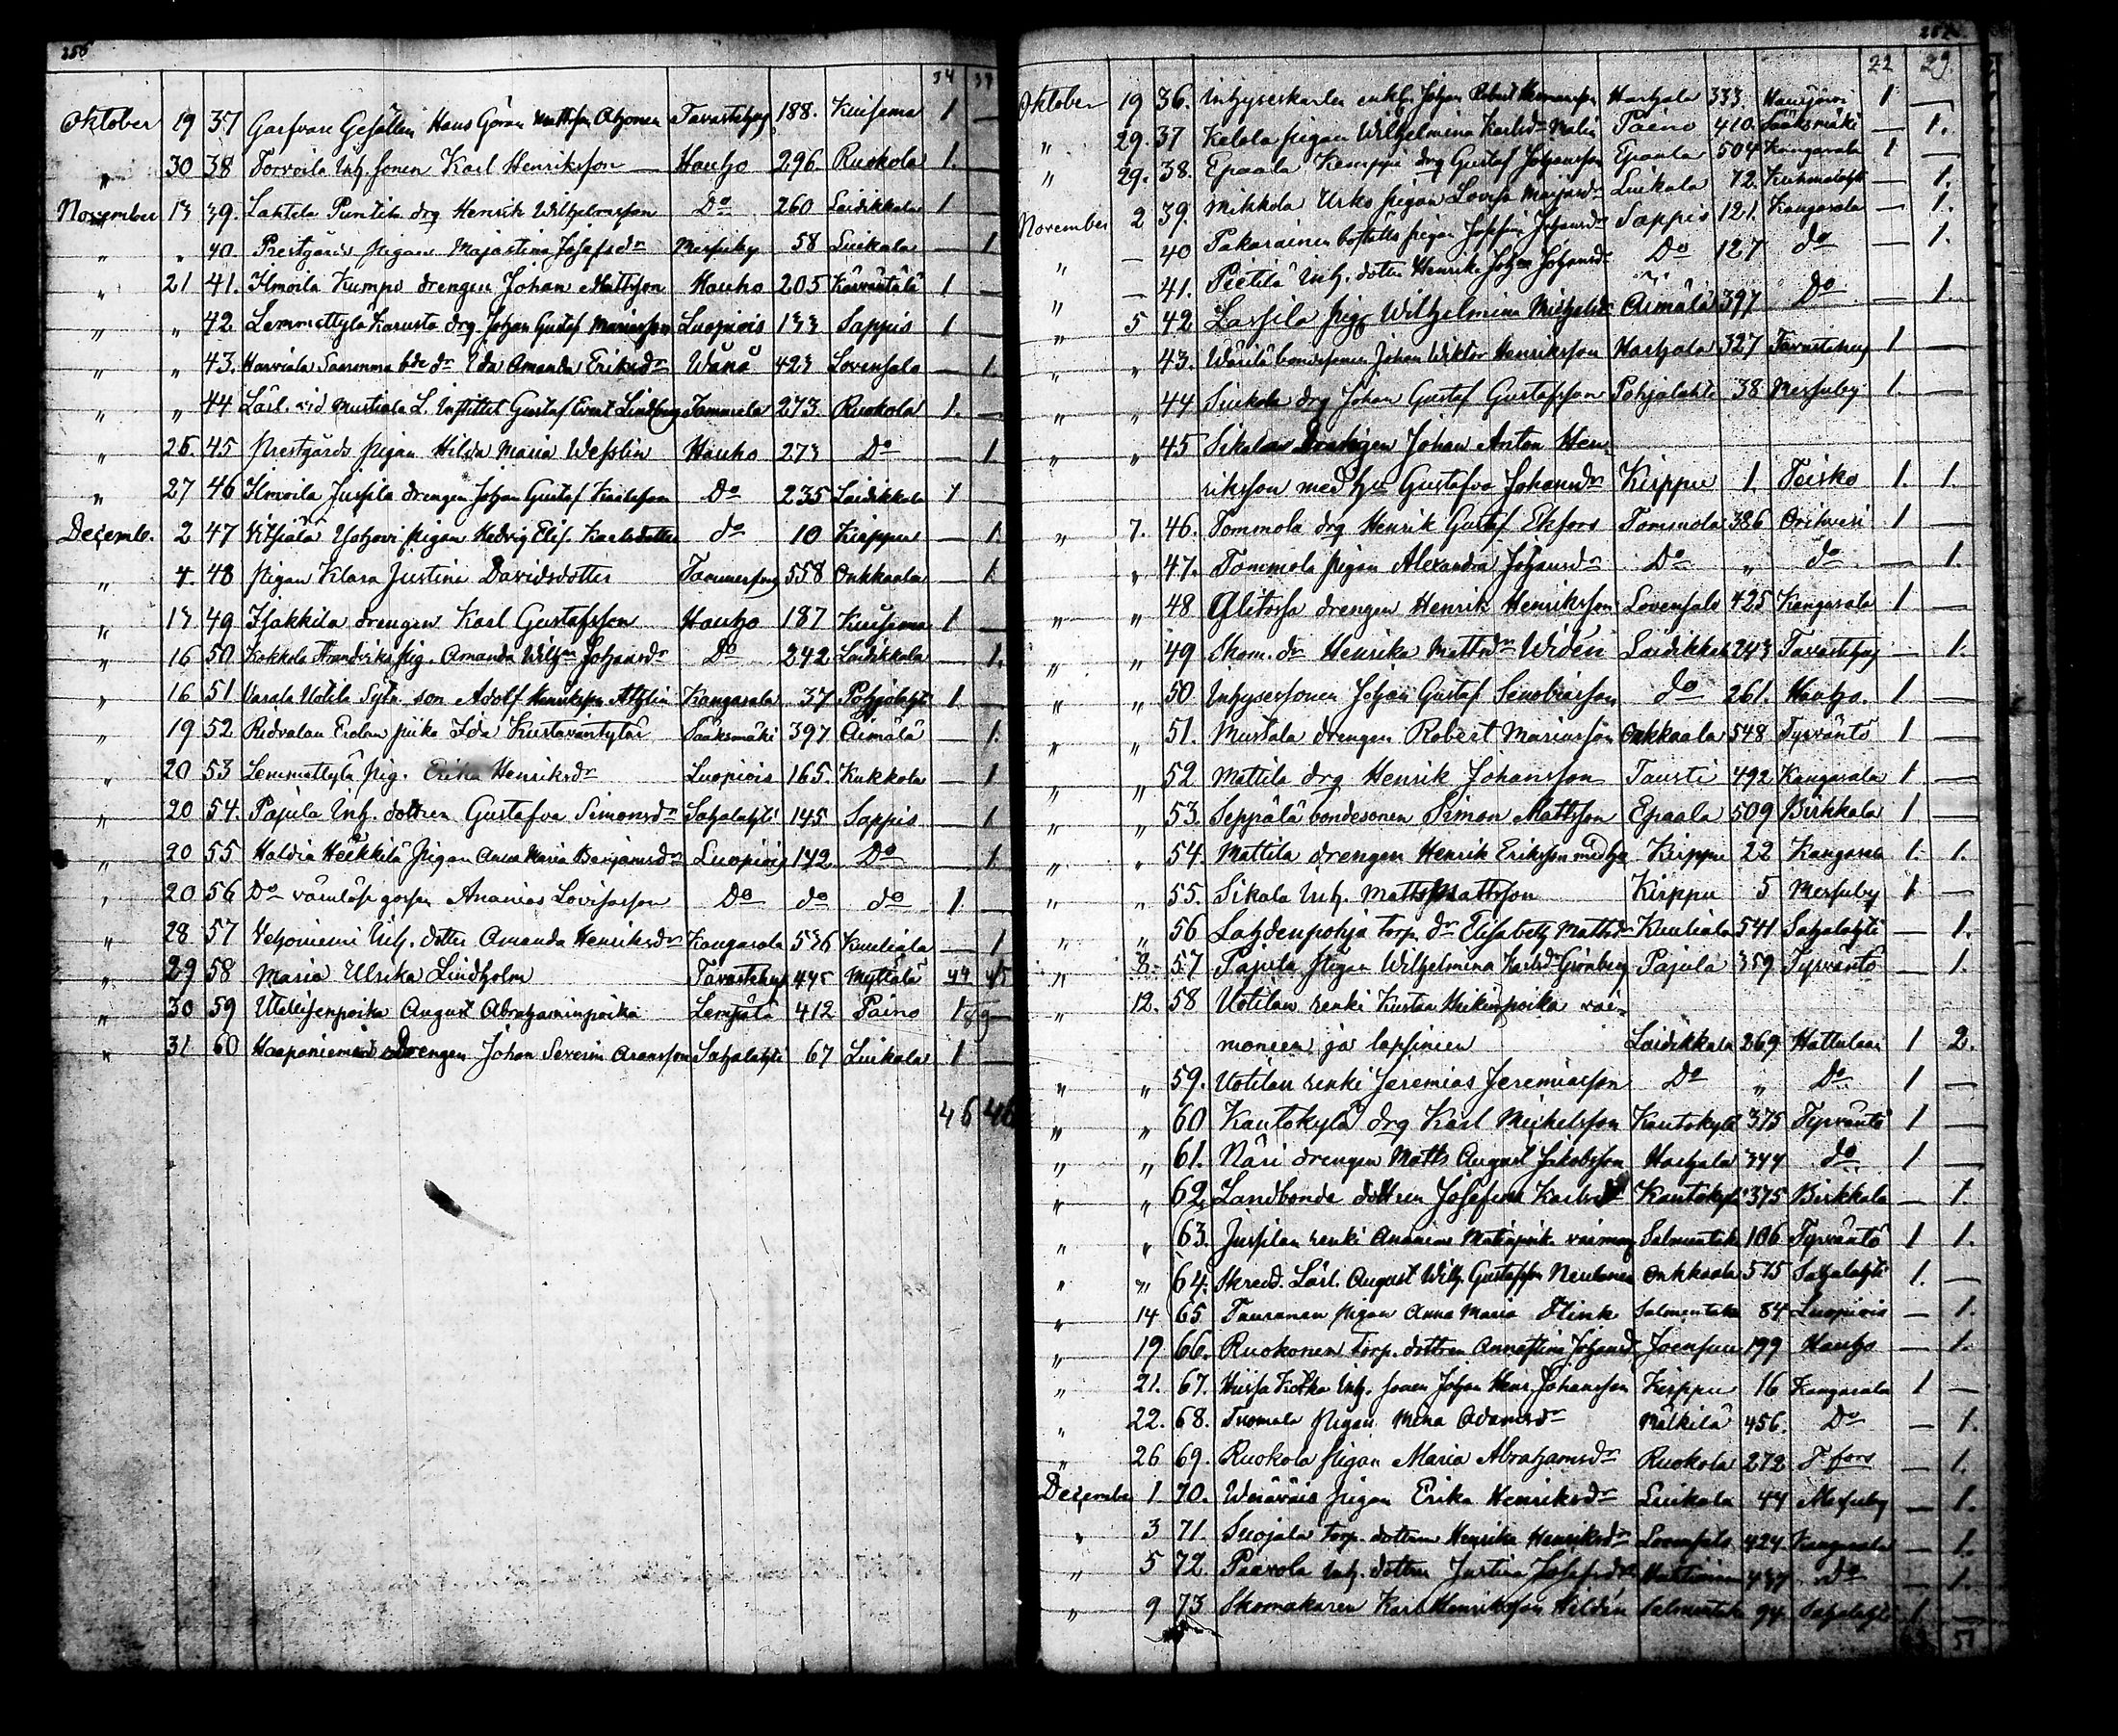 256
34 34
Oktober 19 37 Garfvare Gesällen Hans Göran Mattsson Ahonen Tavastehus 188. Kuisema 1 —
" 30 38 Torvoila Inh. sonen Karl Henriksson — Hauho 296. Ruokola 1.
November 13 39. Lahtela Puntila drg Henrik Wilhelmsson Do 260 Laidikkala 1
" " 40 Prestgårds pigan Majastina Josefsdr Messuby 58 Luikala — 1
" 21 41. Ilmoila Kumpo drengen Johan Mattsson Hauho 205 1 —
" " 42 Lemmettylä drg. Johan Gustaf Mariasson Luopiois 133 Sappis 1
" " 43. Harviala bde dr Ida Amanda Eriksdr Wånå 423 Lovensala — 1.
" " 44 Lärl. vid Mustiala L. Institet Gustaf Evert Lindberg Tammela 273 Ruokola 1. —
" 25 45 Prestgårds pigan Hilda Maria Wesslin Hauho 273 Do — 1
" 27 46 Ilmoila Jussila drengen Johan Gustaf Karlsson Do 235 Laidikkala 1
Decemb. 2 47 pigan Hedvig Elis. Karlsdotter do 10 Kirppu — 1.
" 4. 48 pigan Klara Justina Davidsdotter Tammerfors 558 Onkkaala — 1.
" 13 49 Hakkila drengen Karl Gustafsson Hauho 187 Kuisema 1 —
" 16 50 Kokkola pig. Amanda Wilhna Johansdr Do 242 Laidikkala — 1.
" 16 51 Uotila Sytn. son Adolf Henriksson Kangasala 37 Pohjalahti 1
" 19 52 Ridvalan Erolan piika Ida Kustavintytär Sääksmäki 397 Äimälä — 1.
" 20 53 Lemmettylä pig. Erika Henriksdr Luopiois 165. Kukkola — 1
" 20 54. Pajula Inh. dottren Gustafva Simonsdr Sahalahti 145 Sappis 1
" 20 55 Haldia Heikkilä pigan Anna Maria Benjamsdr Luopiois 142 Do 1
" 20 56 Do värnlöse gossen Ananias Lovisasson Do do do 1 —
" 28 57 Vehoniemi Inh. dotter Amanda Henriksdr Kangasala 536 Kuuliala — 1
" 29 58 Maria Ulrika Lindholm Tavastehus 445 Myttälä 44 45
" 30 59 August Abrahaminpoika Lempäälä 412 Paino 1 89 —
" 31 60 Haapaniemi Drengen Johan Severin Aronsson Sahalahti 67 Luikala 1 —
46 46
22 29.
Oktober 19 36. Inhyseskarlen enkl. Johan Robert Hermansson Harhala 333 Hausjärvi 1 —
" 29. 37 Kelola pigan Wilhelmina Karlsdr Malin Paino 410. Sääksmäki — 1.
" 29. 38. Epaala Kemppi drg Gustaf Johansson Epaala 504 Kangasala 1 —
November 2 39. Mikkola Urko pigan Lovisa Luikala 72. Kuhmalahti — 1.
" — 40 Pakarainen boställs pigan Josefina Johansdr Sappis 121. Kangasala — 1.
" — 41. Pietilä Inh. dotter Henrika Johansdr Do 127 do — 1.
" 5 42 Lassila pig Wilhelmina Michelsdr Äimälä 397 Do — 1.
" " 43. Wärilä bondesonen Johan Wiktor Henriksson Harhala 327 Tavastehus 1 —
" " 44 Luikala drg Johan Gustaf Gustafsson Pohjalahti 38 Messuby 1. —
" " 45 Sikalan Drengen Johan Anton Hen-
riksson med hu Gustafva Johansdr Kirppu 1. Teisko 1. 1.
" 7. 46. Tommola drg Henrik Gustaf Ekfors Tommola 386 Orihvesi 1 —
" " 47. Tommola pigan Alexandra Johansdr Do " do — 1.
" " 48 drengen Henrik Henriksson Lovensala 425 Kangasala 1 —
" " 49 Skom. dr Henrika Mattsdr Widén Laidikkala 243 Tavastehus — 1.
" " 50 Inhysessonen Johan Gustaf Senobiasson do 261. Hauho. 1 —
" " 51. Mustala drengen Robert Mariasson Onkkaala 548 Tyrväntö 1 —
" " 52 Mattila drg Henrik Johansson Tausti 492 Kangasala 1 —
" " 53. Seppälä bondesonen Simon Mattsson Epaala 509 Birkkala 1 —
" " 54. Mattila drengen Henrik Eriksson med hu Kirppu 22 Kangasala 1. 1.
" " 55. Sikala Inh. Matts Mattsson Kirppu 5 Messuby 1 —
" " 56 Lahdenpohja torp. dr Elisabeth Mattsdr Kuuliala 541 Sahalahti — 1.
" 8. 57 Pajula pigan Wilhelmina Karlsdr Grönberg Pajula 359 Tyrväntö — 1.
" 12. 58 Uotilan renki Kustaa Heikinpoika vai-
moneen ja lapsineen Laidikkala 269 Hattulaan 1 2.
" " 59. Uotilan renki Jeremias Jeremiasson Do " Do 1 —
" " 60 Kautokylä drg Karl Michelsson Kautokylä 375 Tyrväntö 1 —
" " 61. Näri drengen Matts August Jakobsson Harhala 344 do 1 —
" " 62 Landbonde dottren Josefina Karlsdr Kautokylä 375 Birkkala — 1.
" " 63. Jussilan renki Ananias Matinpoika vaimon Salmentaka 106 Tyrväntö 1 1.
" " 64. Skredd. Lärl. August Wilh. Gustafsson Onkkaala 575 Sahalahti 1. —
" 14 65 pigan Anna Maria Flink Salmentaka 84 Luopiois — 1.
" 19 66. Ruokonen torp. dottren Annastina Johansd. Joensuu 199 Hauho — 1.
" 21. 67. Inh. sonen Johan Henr. Johansson Kirppu 16 Kangasala 1 —
" 22. 68. Tuomala pigan Mina Adamsdr Mälkilä 456. Do — 1.
" 26 69. Ruokola pigan Maria Abrahamsdr Ruokola 272 T.fors — 1.
December 1 70. pigan Erika Henriksdr Luikala 44 Messuby — 1.
" 3 71. Suojala torp. dottren Henrika Henriksdr Lovensala 424 Kangasala — 1.
" 5 72 Paavola Inh. dottren Justina Josefsdr 437 do — 1.
" 9 73 Skomakaren Karl Henriksson Hildén Salmentaka 94 Sahalahti 1 —
51